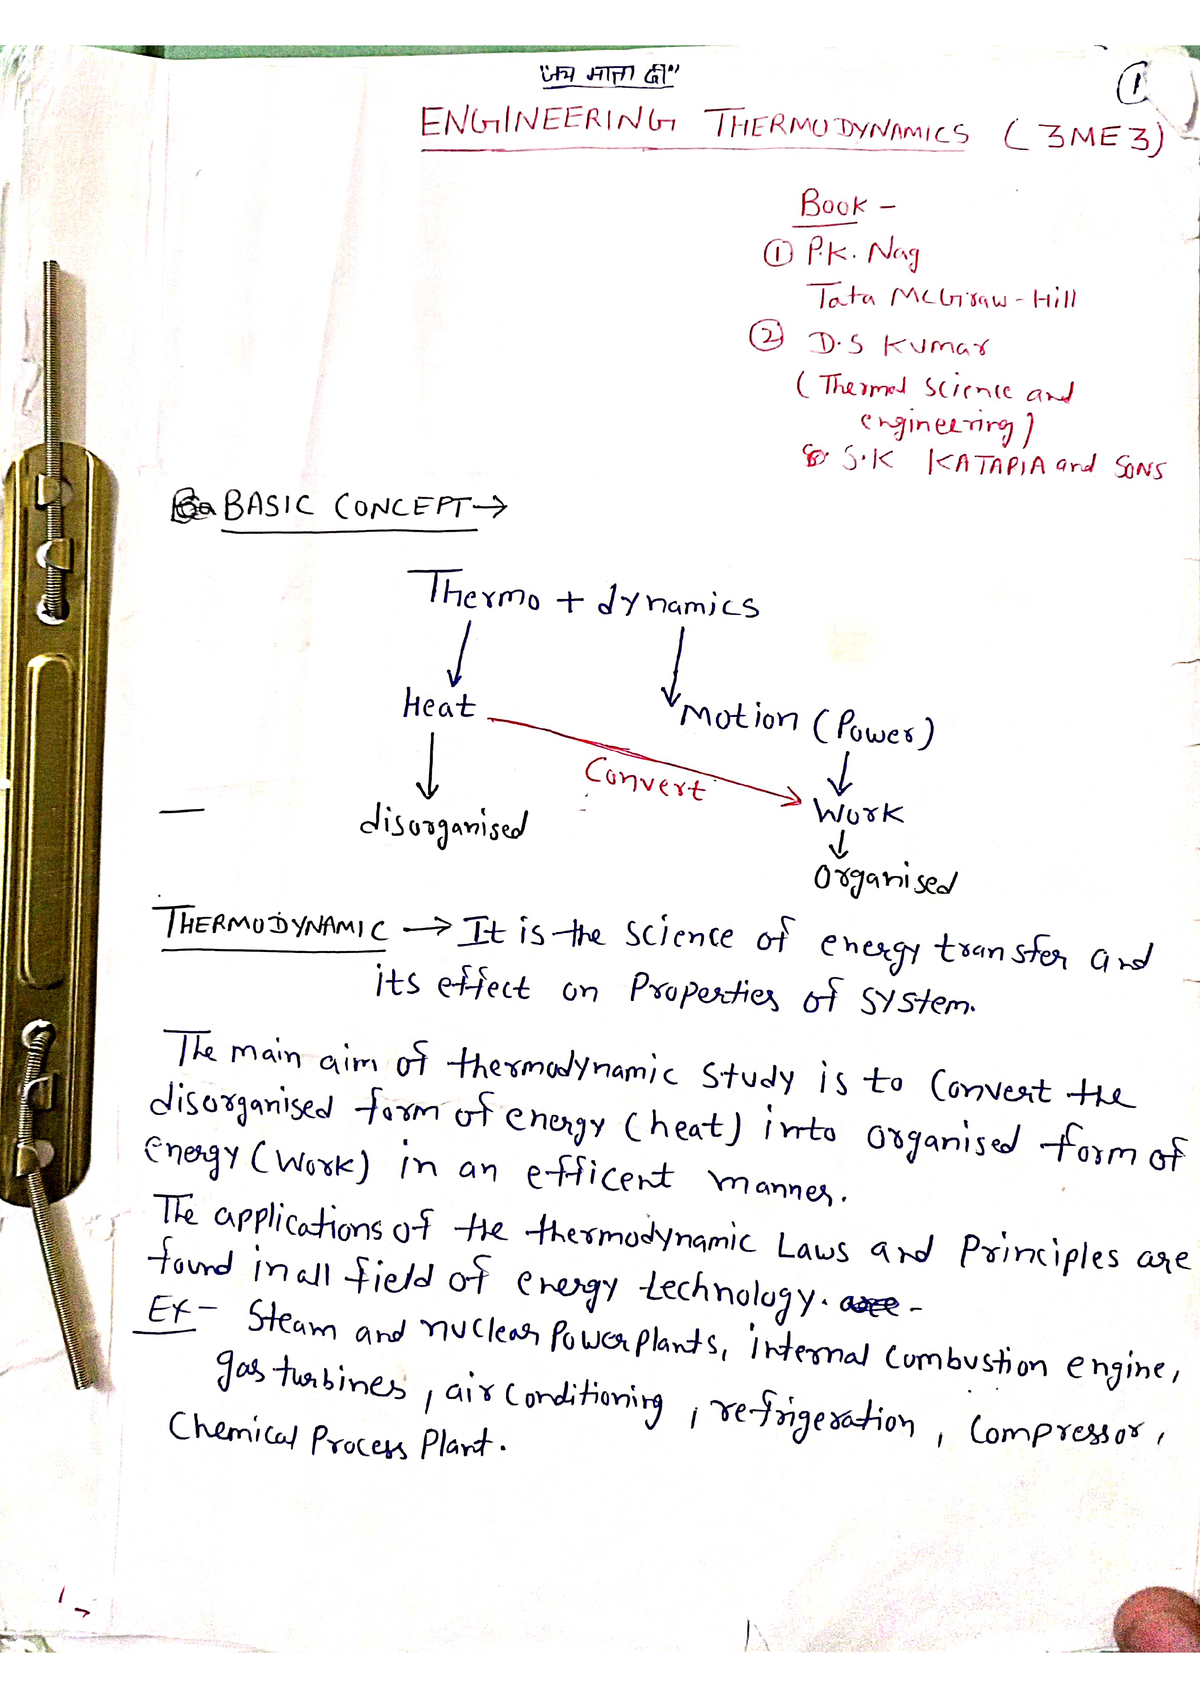 "जय माता दी"
1
ENGINEERING THERMODYNAMICS (3ME3)
Book -
① P.K. Nag
Tata McGraw-Hill
② D.S Kumar
(Thermal Science and
engineering)
S.K KATAPIA and SONS
BASIC CONCEPT→
Thermo + dynamics
Heat
Motion (Power)
Convert
Work
disorganised
Organised
THERMODYNAMIC → It is the science of energy transfer and
its effect on Properties of system.
The main aim of thermodynamic study is to Convert the
disorganised form of energy (heat) into organised form of
energy (Work) in an efficent manner.
The applications of the thermodynamic Laws and Principles are
found in all field of energy technology. -
Ex- Steam and nuclear Power Plants, internal Combustion engine,
gas turbines, air Conditioning, refrigeration, Compressor,
Chemical Process Plant.